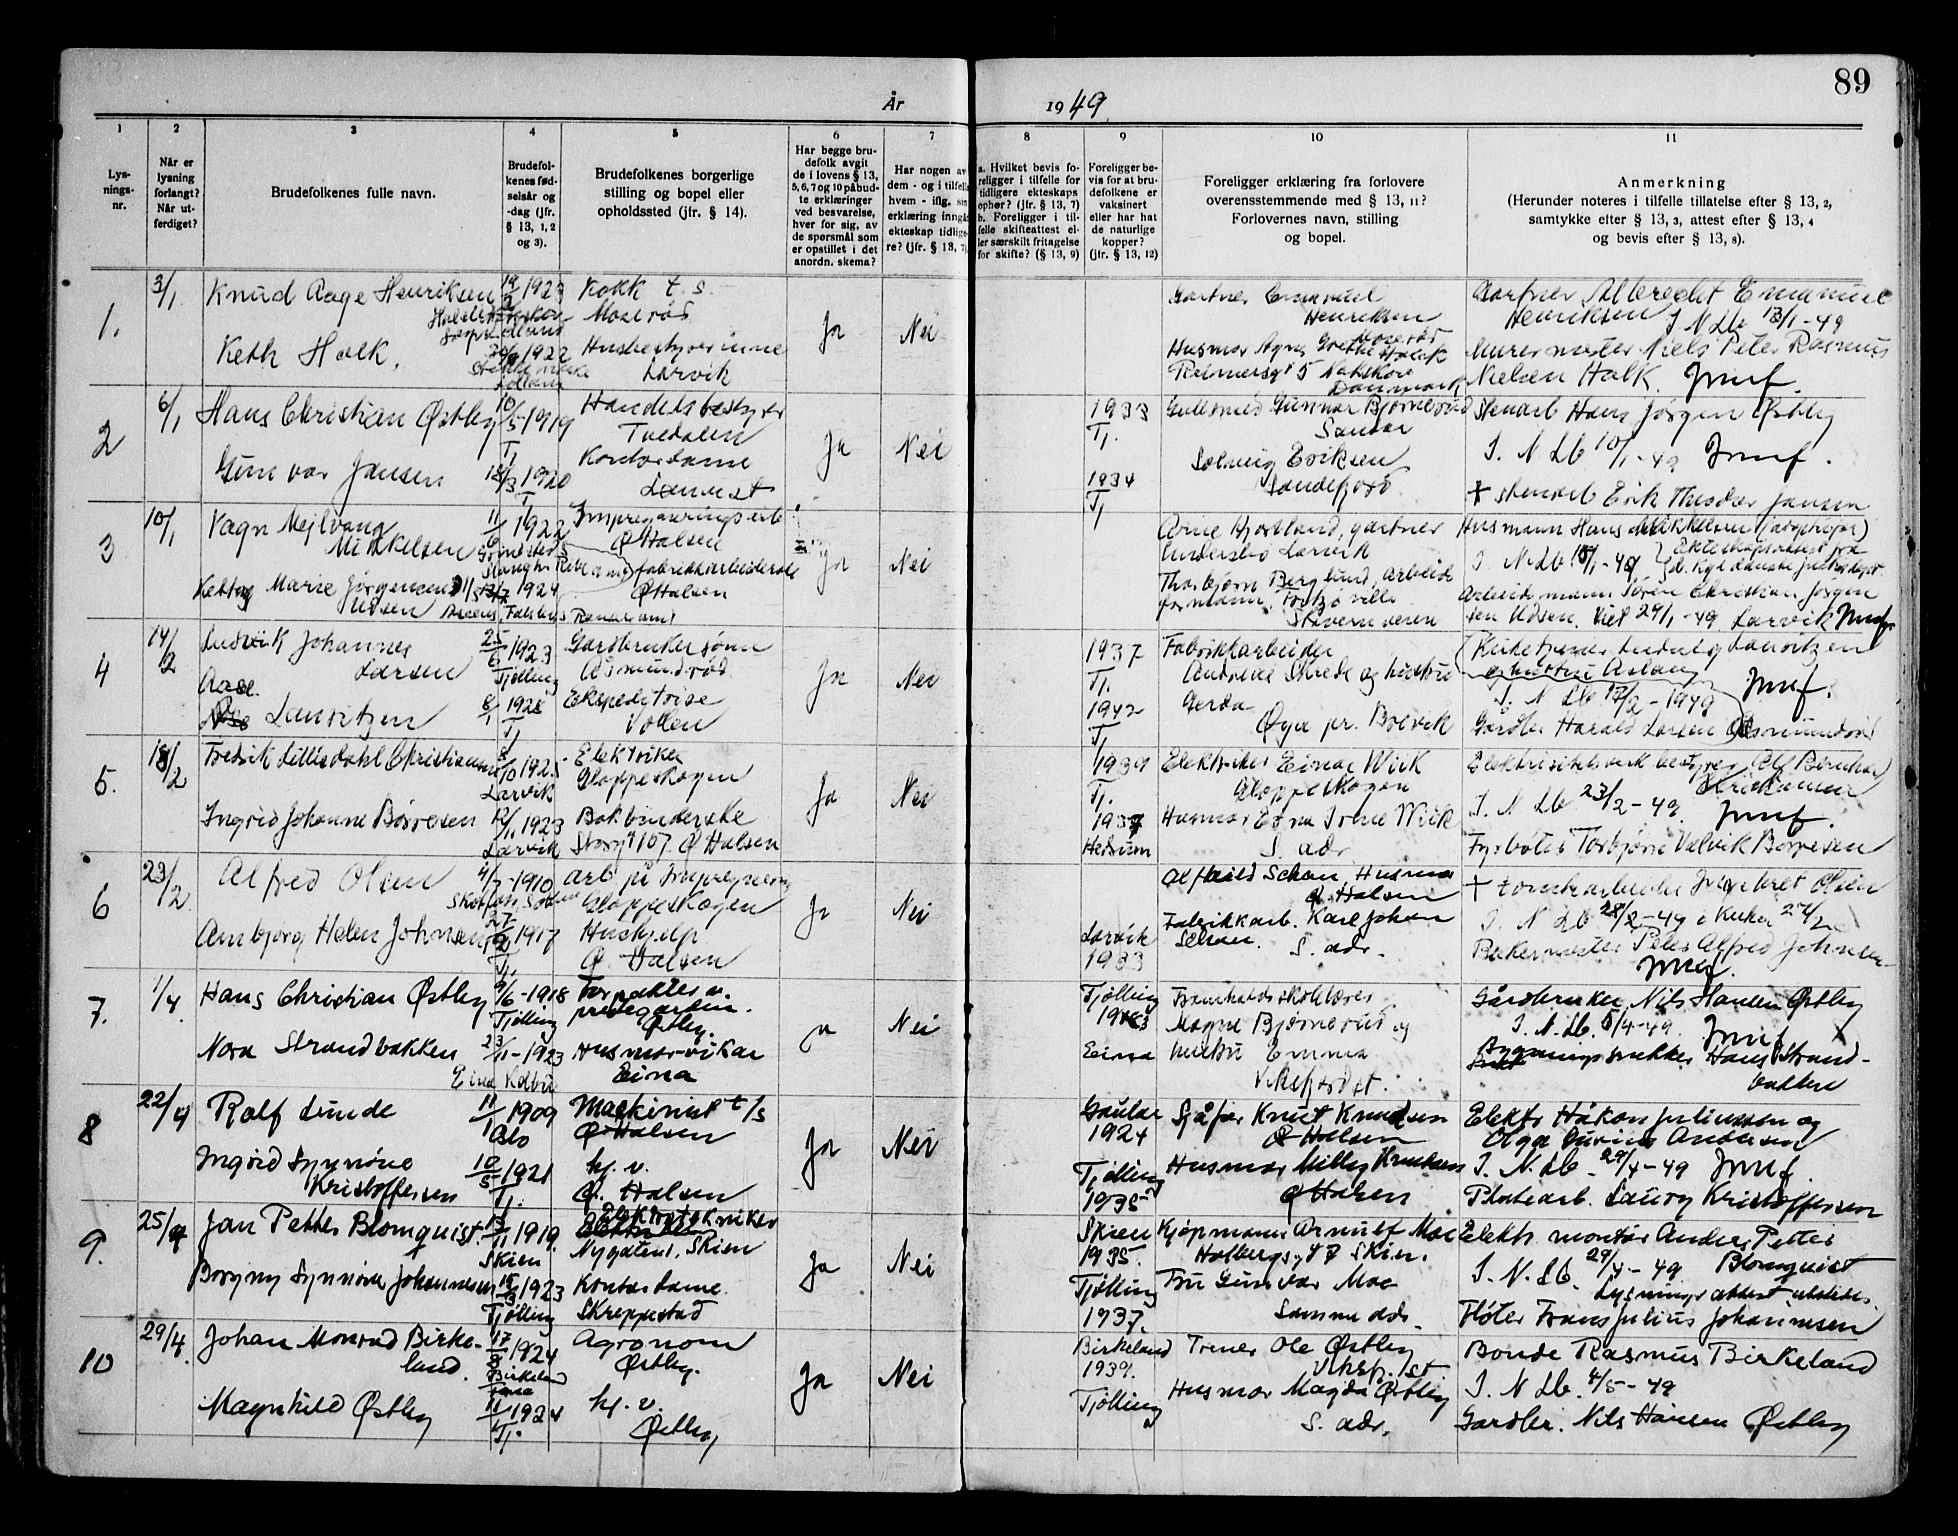 89
År 1949.
1 2 3 4 5 6 7 8 9 10 11
Lys-
nings-
nr.
Når er
lysning
forlangt?
Når ut-
ferdiget?
Brudefolkenes fulle navn.
Brudefol-
kenes fød-
selsår og
-dag (jfr.
§ 13, 1, 2
og 3).
Brudefolkenes borgerlige
stilling og bopel eller
opholdssted (jfr. § 14).
Har begge bru-
defolk avgit
de i lovens § 13,
5, 6, 7 og 10 påbud-
te erklæringer
ved besvarelse,
hver for sig, av
de spørsmål som
er opstillet i det
anordn. skema?
Har nogen av
dem - og i tilfelle
hvem - iflg. sin
erklæring inngått
ekteskap tidlige-
re? (jfr. § 13, 7)
a. Hvilket bevis fo-
religger i tilfelle for
tidligere ekteskaps
ophør? (jfr. § 13, 7)
b. Foreligger i til-
felle skifteattest el-
ler særskilt fritagelse
for skifte? (§ 13, 9)
Foreligger be-
vis for at bru-
defolkene er
vaksinert
eller har hat
de naturlige
kopper?
(jfr. § 13, 12)
Foreligger erklæring fra forlovere
overensstemmende med § 13, 11?
Forlovernes navn, stilling
og bopel.
Anmerkning
(Herunder noteres i tilfelle tillatelse efter § 13, 2,
samtykke efter § 13, 3, attest efter § 13, 4
og bevis efter § 13, 8).
1.
3/1
Knud Aage Henriksen
19/2 1923
Kokk t. s.
Moserød
Keth Halk.
1922
Husbestyrerinne
Larvik
Ja
Nei
Gartner Emanuel
Henriksen
Moserød
Husmor Agnes Grethe Halck
Reimersgt 5 Nakskov
Danmark
Gartner Albrecht Emanuel
Henriksen I. N. Lb 13/1-49
Murermester Niels Peter Rasmus
Nielsen Halk.
2
6/1
Hans Christian Østby
10/5-1919
Tj.
Handelsbestyrer
Tvedalen
Gunvor Jansen
18/3 1920
Tj.
Kontordame
Ja
Nei
1933
Tj.
1934
Tj
Gullsmed Gunnar Bjørnerud
Sandar
Solveig Eriksen
Sandefjord
Stenarb Hans Jørgen Østby
I. N Lb 10/1-49
+ stenarb Erik Theodor Jansen
3
10/1
Vagn Mejlvang
Mikkelsen
11/6 1922
Impregneringsarb
Ø Halsen
Ketty Marie Jørgensen
Udsen
1924
fabrikkarbeiderske
Ø Halsen
Ja
Nei
Arne Hjortland, gartner
Larvik
Thorbjørn Berglund, arbeids
formann, Fritzø
Husmann Hans Mikkelsen
I. N. Lb 15/1-49
Arbeidsmann Søren Christian Jørgen
sen Udsen. Viet 29/1-49 Larvik
4
14/2
Ludvik Johannes
Larsen
25/6 1923
Tjølling
Gardbrukersønn
Åsmundrød
Aase
Lauritzen
8/1 1928
Tj
Ekspeditrise
Vollen
Ja
Nei
1937
Tj.
1942
Tj
Fabrikkarbeider
Andreas Skrede og hustru
Gerda
Øya pr. Brevik
Kirketjener Ludvig Lauritzen
og hustru Aslaug
I. N Lb 17/2-1949
Gardbr Harald Larsen Åsmundrød
5.
18/2
Fredrik Lillisdahl Christiansen
10 1925
Larvik
Elektriker
Gloppeskogen
Ingrid Johanne Børresen
12/11 1923
Larvik
Bokbinderske
Storgt 107. Ø Halsen
Ja
Nei
1934
Tj.
1937
Hedrum
Elektriker Einar Wiik
Gloppeskogen
Husmor Edna Irene Wiik
S. adr
Elektrisitetsverk bestyrer Alf Bernhard
Kristiansen
I. N. Lb 23/2-49.
Fyrbøter Torbjørn Valvik Børresen
6
23/2
Alfred Olsen
4/7-1910
arb på Impregnering
Gloppeskogen
Annbjørg Helen Johnsen
27/2 1917
Tj.
Hushjelp
Ø. Halsen
Ja
Nei
Larvik
1933
Alfhild Schau, Husmor
Ø. Halsen
Fabrikkarb. Karl Johan
Schau. S. adr.
I. N Lb 28/2-49
Bakermester Peter Alfred Johnsen
7.
1/4
Hans Christian Østby
9/6-1918
Tjølling
Forpakter av
prestegarden.
Østby.
Nora Strandbakken
23/11-1923
Eina Kolbu
Husmorvikar
Eina
Ja
Nei
Tjølling
Eina
Framhaldsskolelærer
Magne Bjørnerud og
hustru Emma
Gårdbruker Nils Hansen Østby
I. N. Lb. 5/4-49.
Bygningssnekker Hans Strand-
bakken
8
22/4
Rolf Lunde
11/1 1909
Oslo
Maskinist t/s
Ø Halsen
Ingrid Synnøve
Kristoffersen
10/5 1921
Tj.
hj. v.
Ø. Halsen
Ja
Nei
Gaular
1924
Tjølling
1935
Sjåfør Knut Knudsen
Ø Halsen
Husmor Milly Knudsen
Ø Halsen
Elektr Håkon Juliussen og
Olga Andersen
I. N. Lb. 29/4-49
Platearb. Laury Kristoffersen
9.
25/4
Jan Petter Blomquist
11 1919.
Skien
Elektrotekniker
Nygaten 1, Skien
Borgny Synnøve Johannesen
15/3 1923
Tjølling
Kontordame.
Skreppestad
Ja
Nei
Skien
1935.
Tjølling
1937.
Kjøpmann Arnulf Moe
Holbergsgt 7 Skien.
Fru Gunvor Moe
Samme adr.
Elektr. montør Anders Petter
Blomquist
I. N. Lb. 29/4-49
Lysningsattest utstedt.
Fløter Frans Julius Johannesen
10
29/4.
Johan Monrad Birke-
land.
17/8 1924
Birkeland
Agronom
Østby.
Magnhild Østby
11/1 1924
Tj.
hj. v.
Østby
Ja
Nei
Birkeland
1939.
Tjølling
Trener Ole Østby
Husmor Magda Østby
S. adr.
Bonde Rasmus Birkeland
I. N Lb. 4/5-49
Gardbr. Nils Hansen Østby